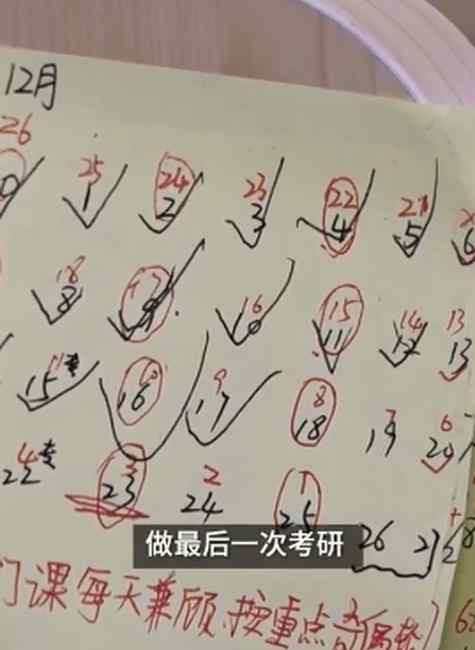 12月
26 25 24 23 22 21
0 1 2 3 4 5 6
18 17 16 15 14 13
8 9 10 11 12 13
11 10 9 8 7 6
15 16 17 18 19 20
4 3 2 1
22 23 24 25 26 27
做最后一次考研
门课每天兼顾,按重点